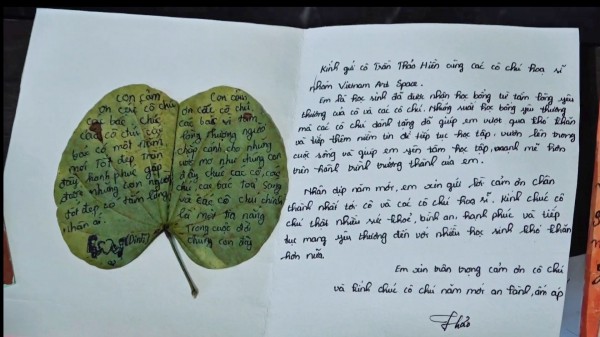 Con cảm
ơn các cô chú
các bác. Chúc
các cô chú các
bác có một năm
mới Tốt đẹp, tràn
đầy hạnh phúc gặp
được những con người
tốt đẹp có tấm lòng
nhân ái.
Con cảm
ơn các cô chú
các bác vì tấm
lòng thương người
chắp cánh cho những
ước mơ như chúng con
ạ. Chúc các cô, các
chú, các bác Tươi sáng
và các cô chú chính
là một Tia nắng
Trong cuộc đời
chúng con ạ
Kính gửi cô Trần Thảo Hiền cùng các cô chú hoạ sĩ
nhóm Vietnam Art Space.
Em là học sinh đã được nhận học bổng từ tấm lòng yêu
thương của cô và các cô chú. Những suất học bổng yêu thương
mà các cô chú dành tặng đã giúp em vượt qua khó khăn
và tiếp thêm niềm tin để tiếp tục học tập, vươn lên trong
cuộc sống và giúp em yên tâm học tập, mạnh mẽ hơn
trên hành trình trưởng thành của em.
Nhân dịp năm mới, em xin gửi lời cảm ơn chân
thành nhất tới cô và các cô chú hoạ sĩ. Kính chúc cô
chú thật nhiều sức khoẻ, bình an, hạnh phúc và tiếp
tục mang yêu thương đến với nhiều học sinh khó khăn
hơn nữa.
Em xin trân trọng cảm ơn cô chú
và kính chúc cô chú năm mới an lành, ấm áp
Thảo